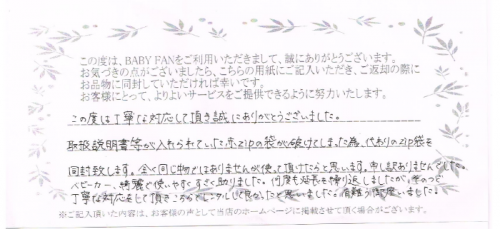 この度は、BABY FANをご利用いただきまして、誠にありがとうございます。
お気づきの点がございましたら、こちらの用紙にご記入いただき、ご返却の際に
お品物に同封していただければ幸いです。
お客様にとって、よりよいサービスをご提供できるように努力いたします。
この度は丁寧な対応して頂き誠にありがとうございました。
取扱説明書等が入れられていた赤zipの袋が破けてしまった為、代わりのzip袋を
同封致します。全く同じ物ではありませんが使って頂けたらと思います。申し訳ありませんでした。
ベビーカー、綺麗で使いやすくすごく助かりました。何度も延長を繰り返しましたが、
丁寧な対応をして頂きこちらでレンタルして良かったと思いました。有難う御座いました。
※ご記入頂いた内容は、お客様の声として当店のホームページに掲載させて頂く場合がございます。